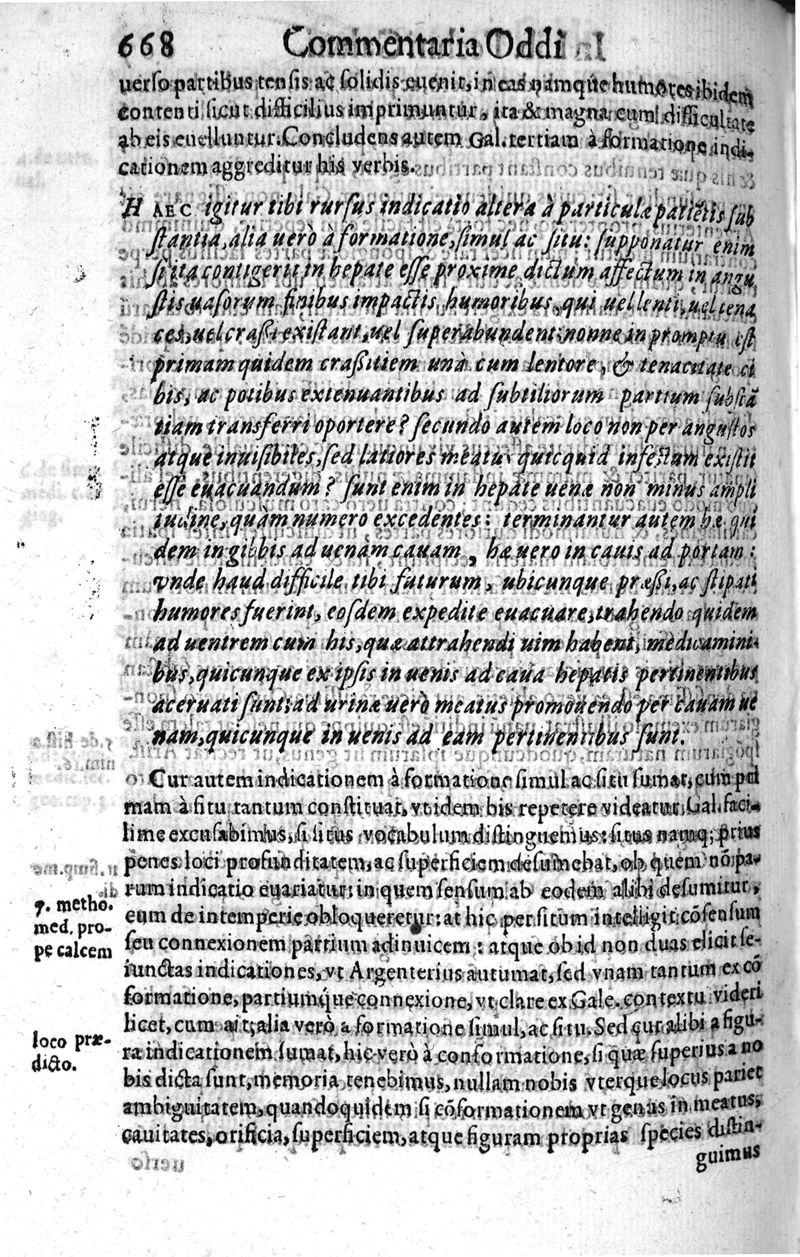 668 Commentaria Oddi
uerso partibus tensis ac solidis euenit, in eas namque humores ibidem
contenti sicut difficilius imprimuntur, ita & magna cum difficultate
ab eis euelluntur. Concludens autem Gal. tertiam à formatione indi-
cationem aggreditur his verbis.
HAEC igitur tibi rursus indicatio altera à particulæ patiētis sub
stantia, alia uerò à formatione, simul ac situ: supponatur enim
si ita contigerit in hepate esse proxime dictum affectum in angu
stis uasorum finibus impactis humoribus, qui uel lenti, uel tena
ces, uel craßi existant, uel superabundent: nonne in promptu est
primam quidem craßitiem unà cum lentore, & tenacitate ci
bis, ac potibus extenuantibus ad subtiliorum partium substā
tiam transferri oportere? secundo autem loco non per angustos
atque inuisibiles, sed latiores meatus quicquid infestum existit
esse euacuandum? sunt enim in hepate uenæ non minus ampli
tudine, quàm numero excedentes: terminantur autem hæ qui
dem in gibbis ad uenam cauam, hæ uero in cauis ad portam:
vnde haud difficile tibi futurum, ubicunque præßi, ac stipati
humores fuerint, eosdem expedite euacuare, trahendo quidem
ad uentrem cum his, quæ attrahendi uim habent, medicamini-
bus, quicunque ex ipsis in uenis ad caua hepatis pertinentibus
aceruati sunt: ad urinæ uerò meatus promouendo per cauam ue
nam, quicunque in uenis ad eam pertinentibus sunt.
Cur autem indicationem à formatione simul ac situ sumat, cum pri
mam à situ tantum constituat, vt idem bis repetere videatur, Gal. faci-
lime excusabimus, si situs vocabulum distinguemus: situs namq; prius
penes loci profunditatem, ac superficiem desumebat, ob quem nō pa-
rum indicatio euariatur: in quem sensum ab eodem alibi desumitur,
7. metho. med. pro- pe calcem
eum de intemperie obloqueretur: at hic per situm intelligit cōsensum
seu connexionem partium adinuicem: atque ob id non duas elicit se-
iunctas indicationes, vt Argenterius autumat, sed vnam tantum ex cō
formatione, partiumque connexione, vt clare ex Gale. contextu videri
licet, cum ait, alia verò a formatione simul, ac situ. Sed cur alibi a figu-
loco præ- dicto.
ra indicationem sumat, hic verò à conformatione, si quæ superius a no
bis dicta sunt, memoria tenebimus, nullam nobis vterque locus pariet
ambiguitatem, quandoquidem si cōformationem vt genus in meatus,
cauitates, orificia, superficiem, atque figuram proprias species distin-
guimus